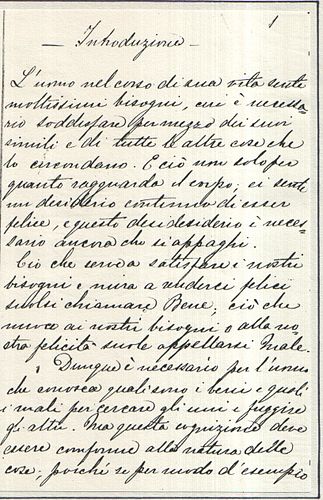 1
— Introduzione —
L'uomo nel corso di sua vita sente
moltissimi bisogni, cui è necessa=
rio soddisfare per mezzo dei suoi
simili e di tutte le altre cose che
lo circondano. E ciò non solo per
quanto ragguarda il corpo; ei sente
un desiderio continuo di esser
felice, e questo desidesiderio è neces=
sario ancora che si appaghi.
Ciò che serve a satisfare i nostri
bisogni e mira a renderci felici
suolsi chiamare Bene, ciò che
nuoce ai nostri bisogni o alla no
stra felicità suole appellarsi Male.
Dunque è necessario per l'uomo
che conosca quali sono i beni e quali
i mali per cercare gli uni e fuggire
gli altri. Ma questa cognizione deve
essere conforme alla natura delle
cose, poiché se per modo d'esempio